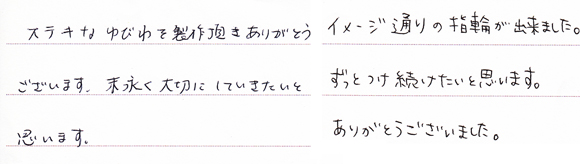 ステキなゆびわを製作頂きありがとう
ございます。末永く大切にしていきたいと
思います。
イメージ通りの指輪が出来ました。
ずっとつけ続けたいと思います。
ありがとうございました。